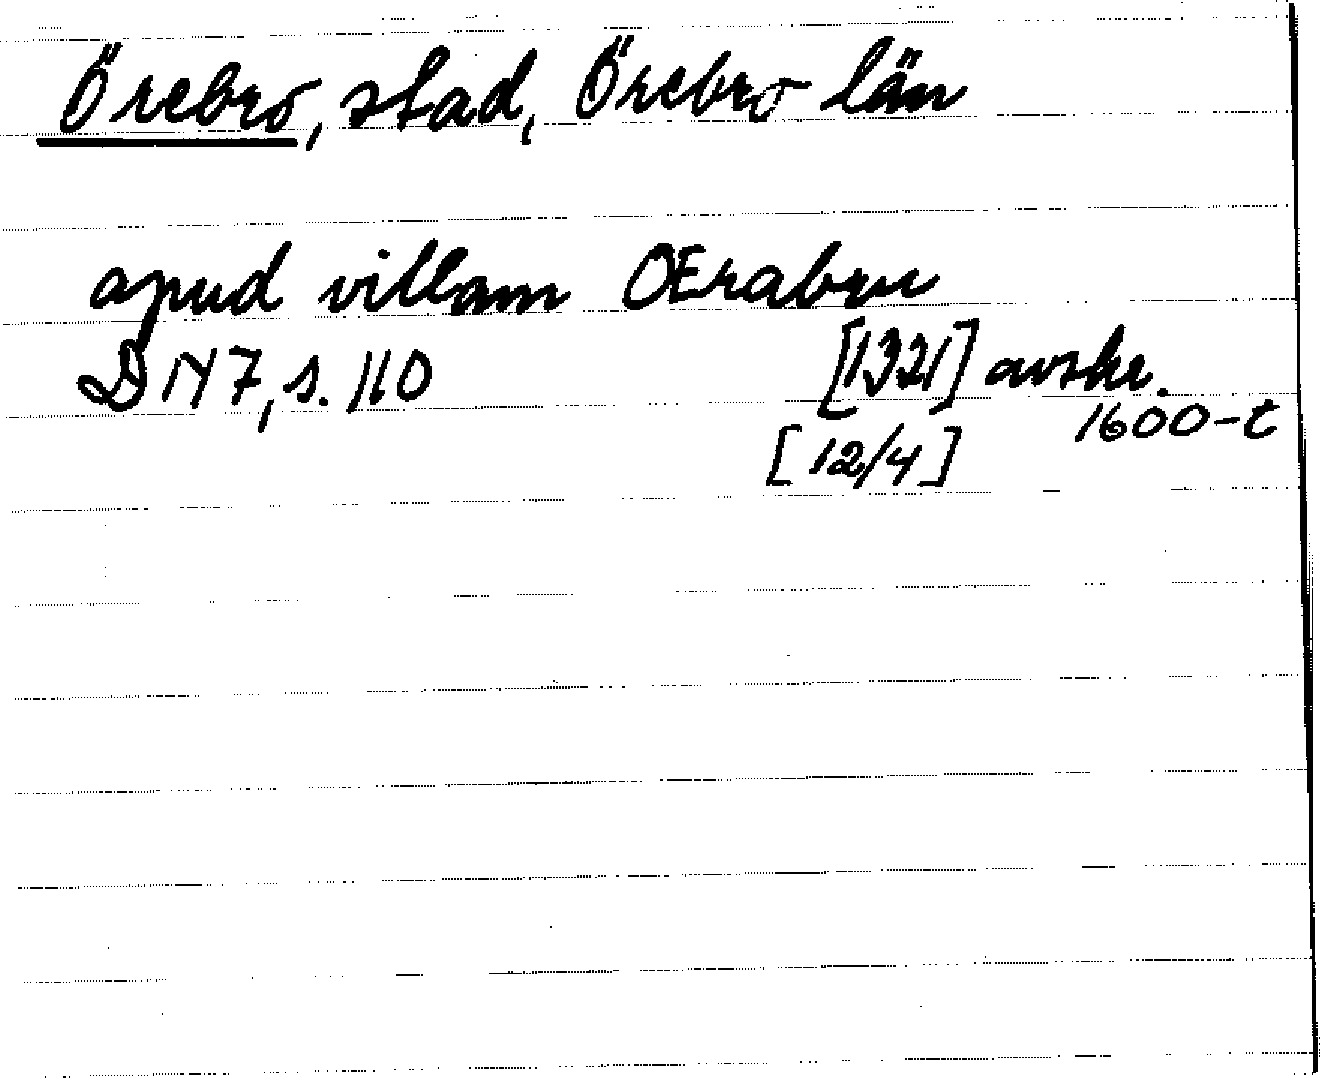 Örebro, stad, Örebro län
apud villam OErabru
DN 7, s. 110 [1321] avskr.
[12/4] 1600-t